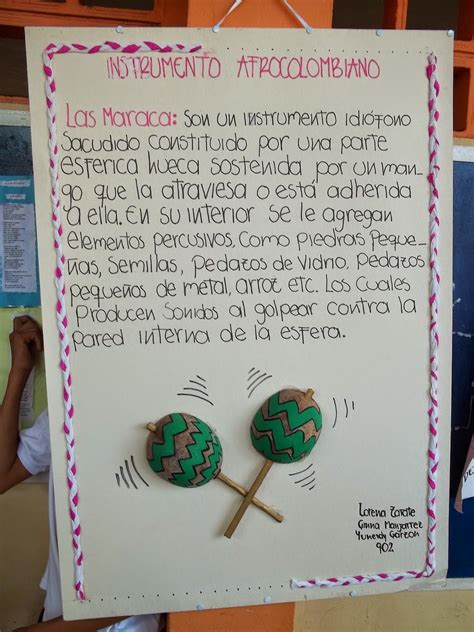 INSTRUMENTO AFROCOLOMBIANO
Las Maraca: Son un instrumento idiófono
Sacudido constituido por una parte
esferica hueca sostenida por un man-
go que la atraviesa o está adherida
a ella. En su interior se le agregan
elementos percusivos, Como Piedras Peque-
ñas, Semillas, Pedazos de Vidrio, Pedazos
pequeños de metal, arroz etc. Los Cuales
Producen Sonidos al golpear contra la
pared interna de la esfera.
Lorena Zarate
Ginna Manjarrez
Yuneidy Garzon
902